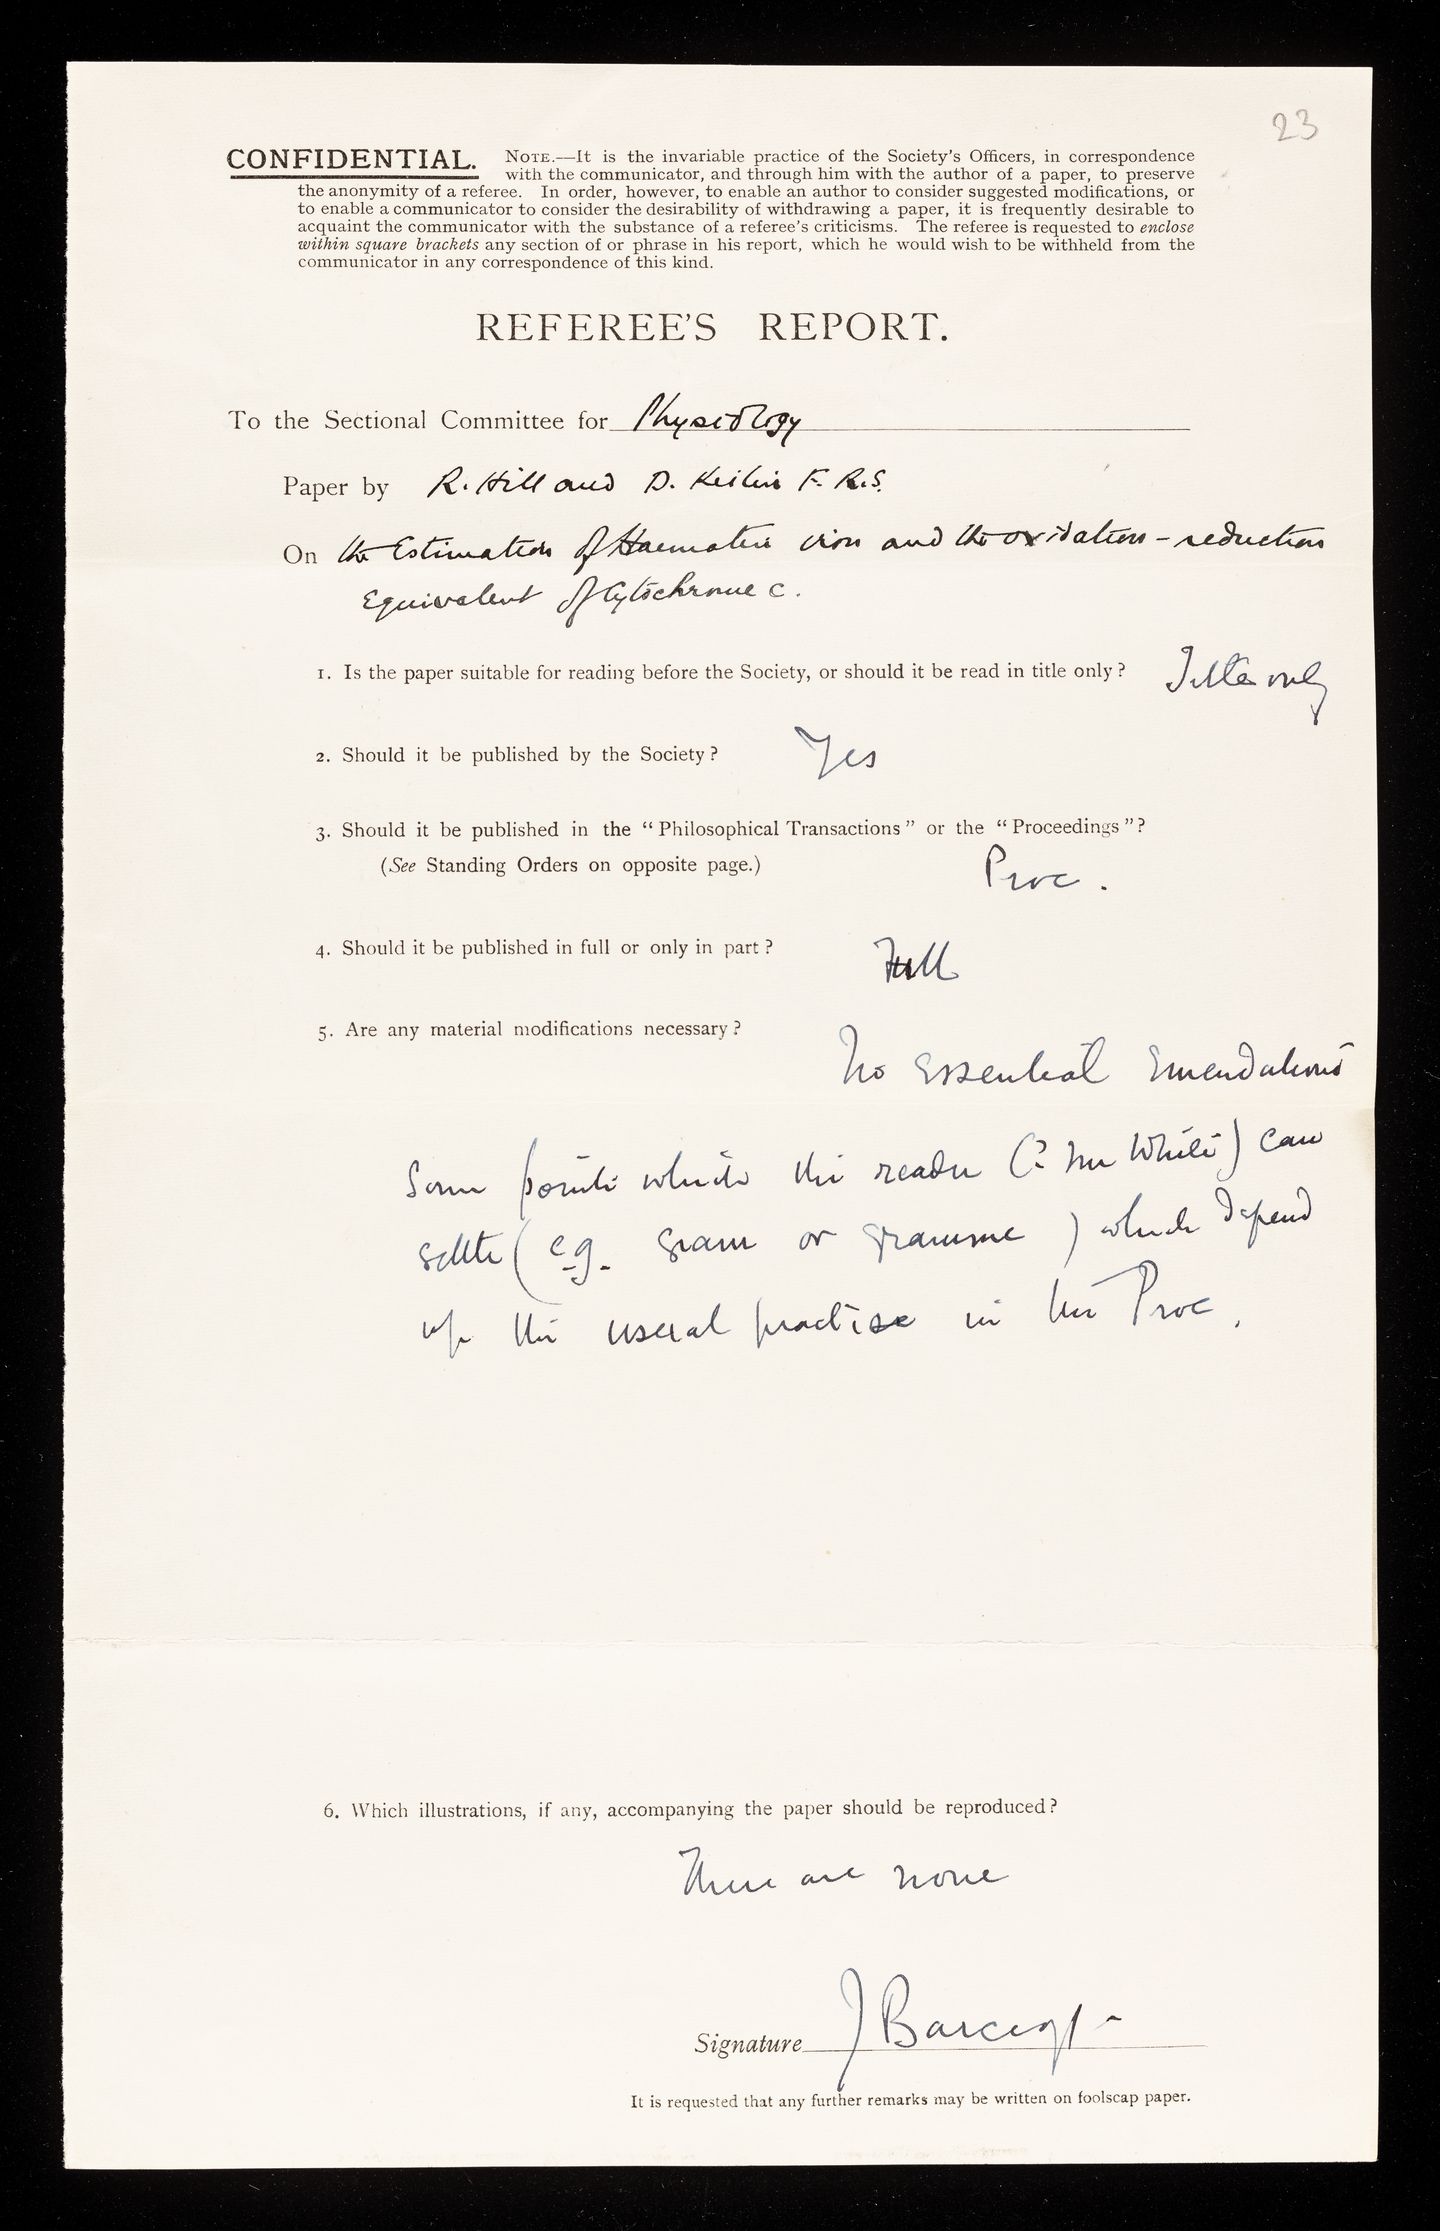 23
CONFIDENTIAL. NOTE.—It is the invariable practice of the Society's Officers, in correspondence
with the communicator, and through him with the author of a paper, to preserve
the anonymity of a referee. In order, however, to enable an author to consider suggested modifications, or
to enable a communicator to consider the desirability of withdrawing a paper, it is frequently desirable to
acquaint the communicator with the substance of a referee's criticisms. The referee is requested to enclose
within square brackets any section of or phrase in his report, which he would wish to be withheld from the
communicator in any correspondence of this kind.
REFEREE'S REPORT.
To the Sectional Committee for Physiology
Paper by R. Hill and D. Keilin F.R.S.
On the Estimation of Haematin iron and the oxidation-reduction
Equivalent of Cytochrome c.
1. Is the paper suitable for reading before the Society, or should it be read in title only? Title only
2. Should it be published by the Society? Yes
3. Should it be published in the "Philosophical Transactions" or the "Proceedings"?
(See Standing Orders on opposite page.) Proc.
4. Should it be published in full or only in part? Full
5. Are any material modifications necessary?
No essential emendations
Some points which the reader (? Mr White) can
settle (e.g. gram or gramme) which depend
up the usual practise in the Proc.
6. Which illustrations, if any, accompanying the paper should be reproduced?
There are none
Signature J Barcroft
It is requested that any further remarks may be written on foolscap paper.